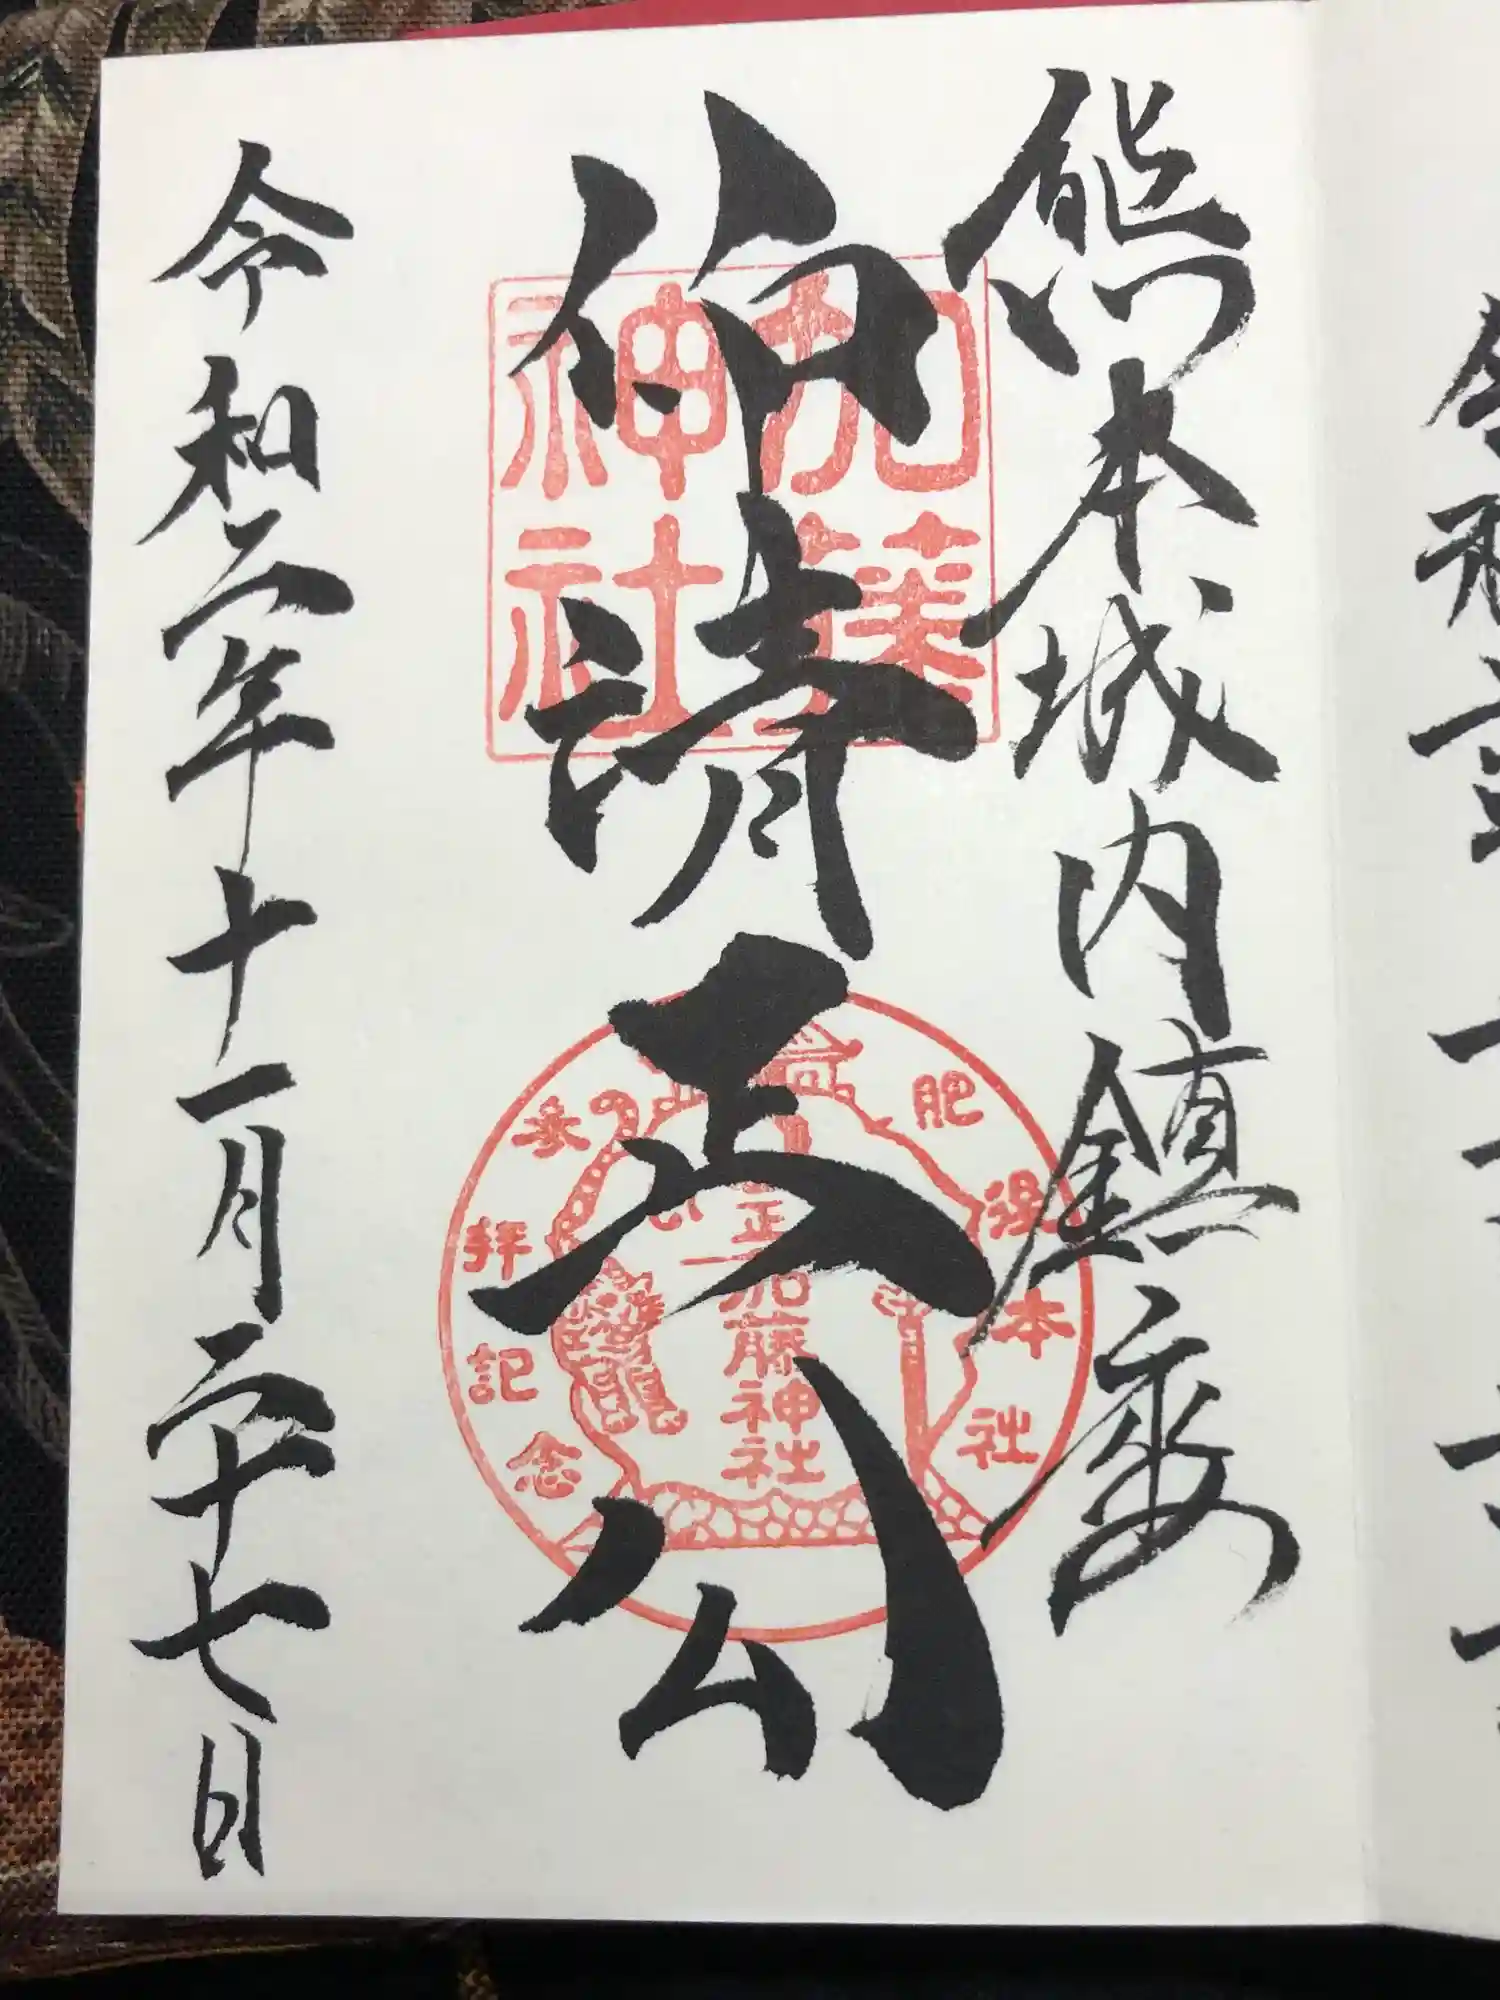 熊本城内鎮座
仰清正公
令和二年十一月二十七日
加藤
神社
肥後本社
参拝記念
加藤神社